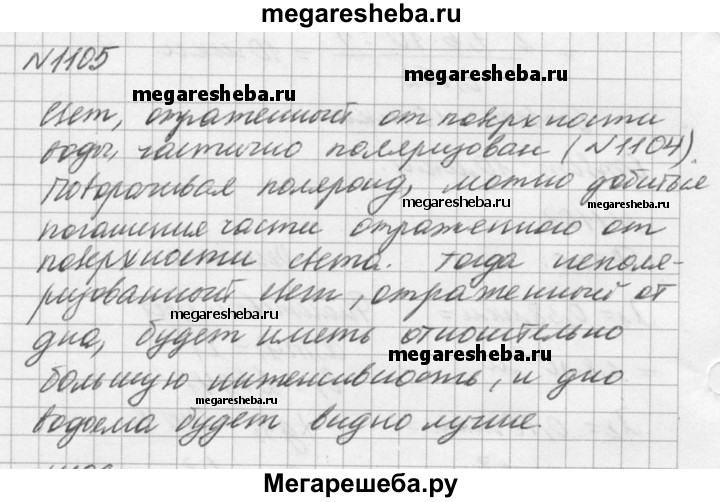 megaresheba.ru
N1105
megaresheba.ru
megaresheba.ru
Свет, отраженный от поверхности
воды, частично поляризован (N1104).
Поворачивая поляроид, можно добиться
megaresheba.ru
megaresheba.ru
погашения части отраженного от
поверхности света. Тогда неполя-
ризованный свет, отраженный от
дна, будет иметь относительно
megaresheba.ru
большую интенсивность, и дно
megaresheba.ru
водоема будет видно лучше.
Мегарешеба.ру